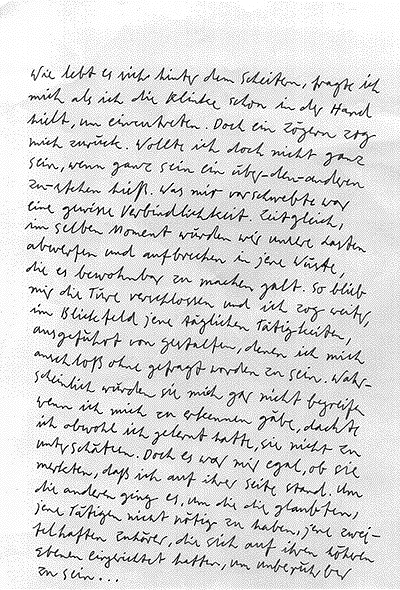 Wie lebt es sich hinter dem Scheitern, fragte ich
mich als ich die Klinke schon in der Hand
hielt, um einzutreten. Doch ein Zögern zog
mich zurück. Wollte ich doch nicht ganz
sein, wenn ganz sein ein über-den-anderen
zu-stehen hieß. Was mir vorschwebte war
eine gewisse Verbindlichkeit. Zeitgleich,
im selben Moment würden wir unsere Lasten
abwerfen und aufbrechen in jene Wüste,
die es bewohnbar zu machen galt. So blieb
mir die Türe verschlossen und ich zog weiter,
im Blickfeld jene täglichen Tätigkeiten,
ausgeführt von Gestalten, denen ich mich
anschloß ohne gefragt worden zu sein. Wahr-
scheinlich würden sie mich gar nicht begreifen
wenn ich mich zu erkennen gäbe, dachte
ich obwohl ich gelernt hatte, sie nicht zu
unterschätzen. Doch es war mir egal, ob sie
merkten, daß ich auf ihrer Seite stand. Um
die anderen ging es, um die die glaubten,
jene Tätigen nicht nötig zu haben, jene zwei-
felhaften Zuhörer, die sich auf ihren höheren
Ebenen eingerichtet hatten, um unberührbar
zu sein...